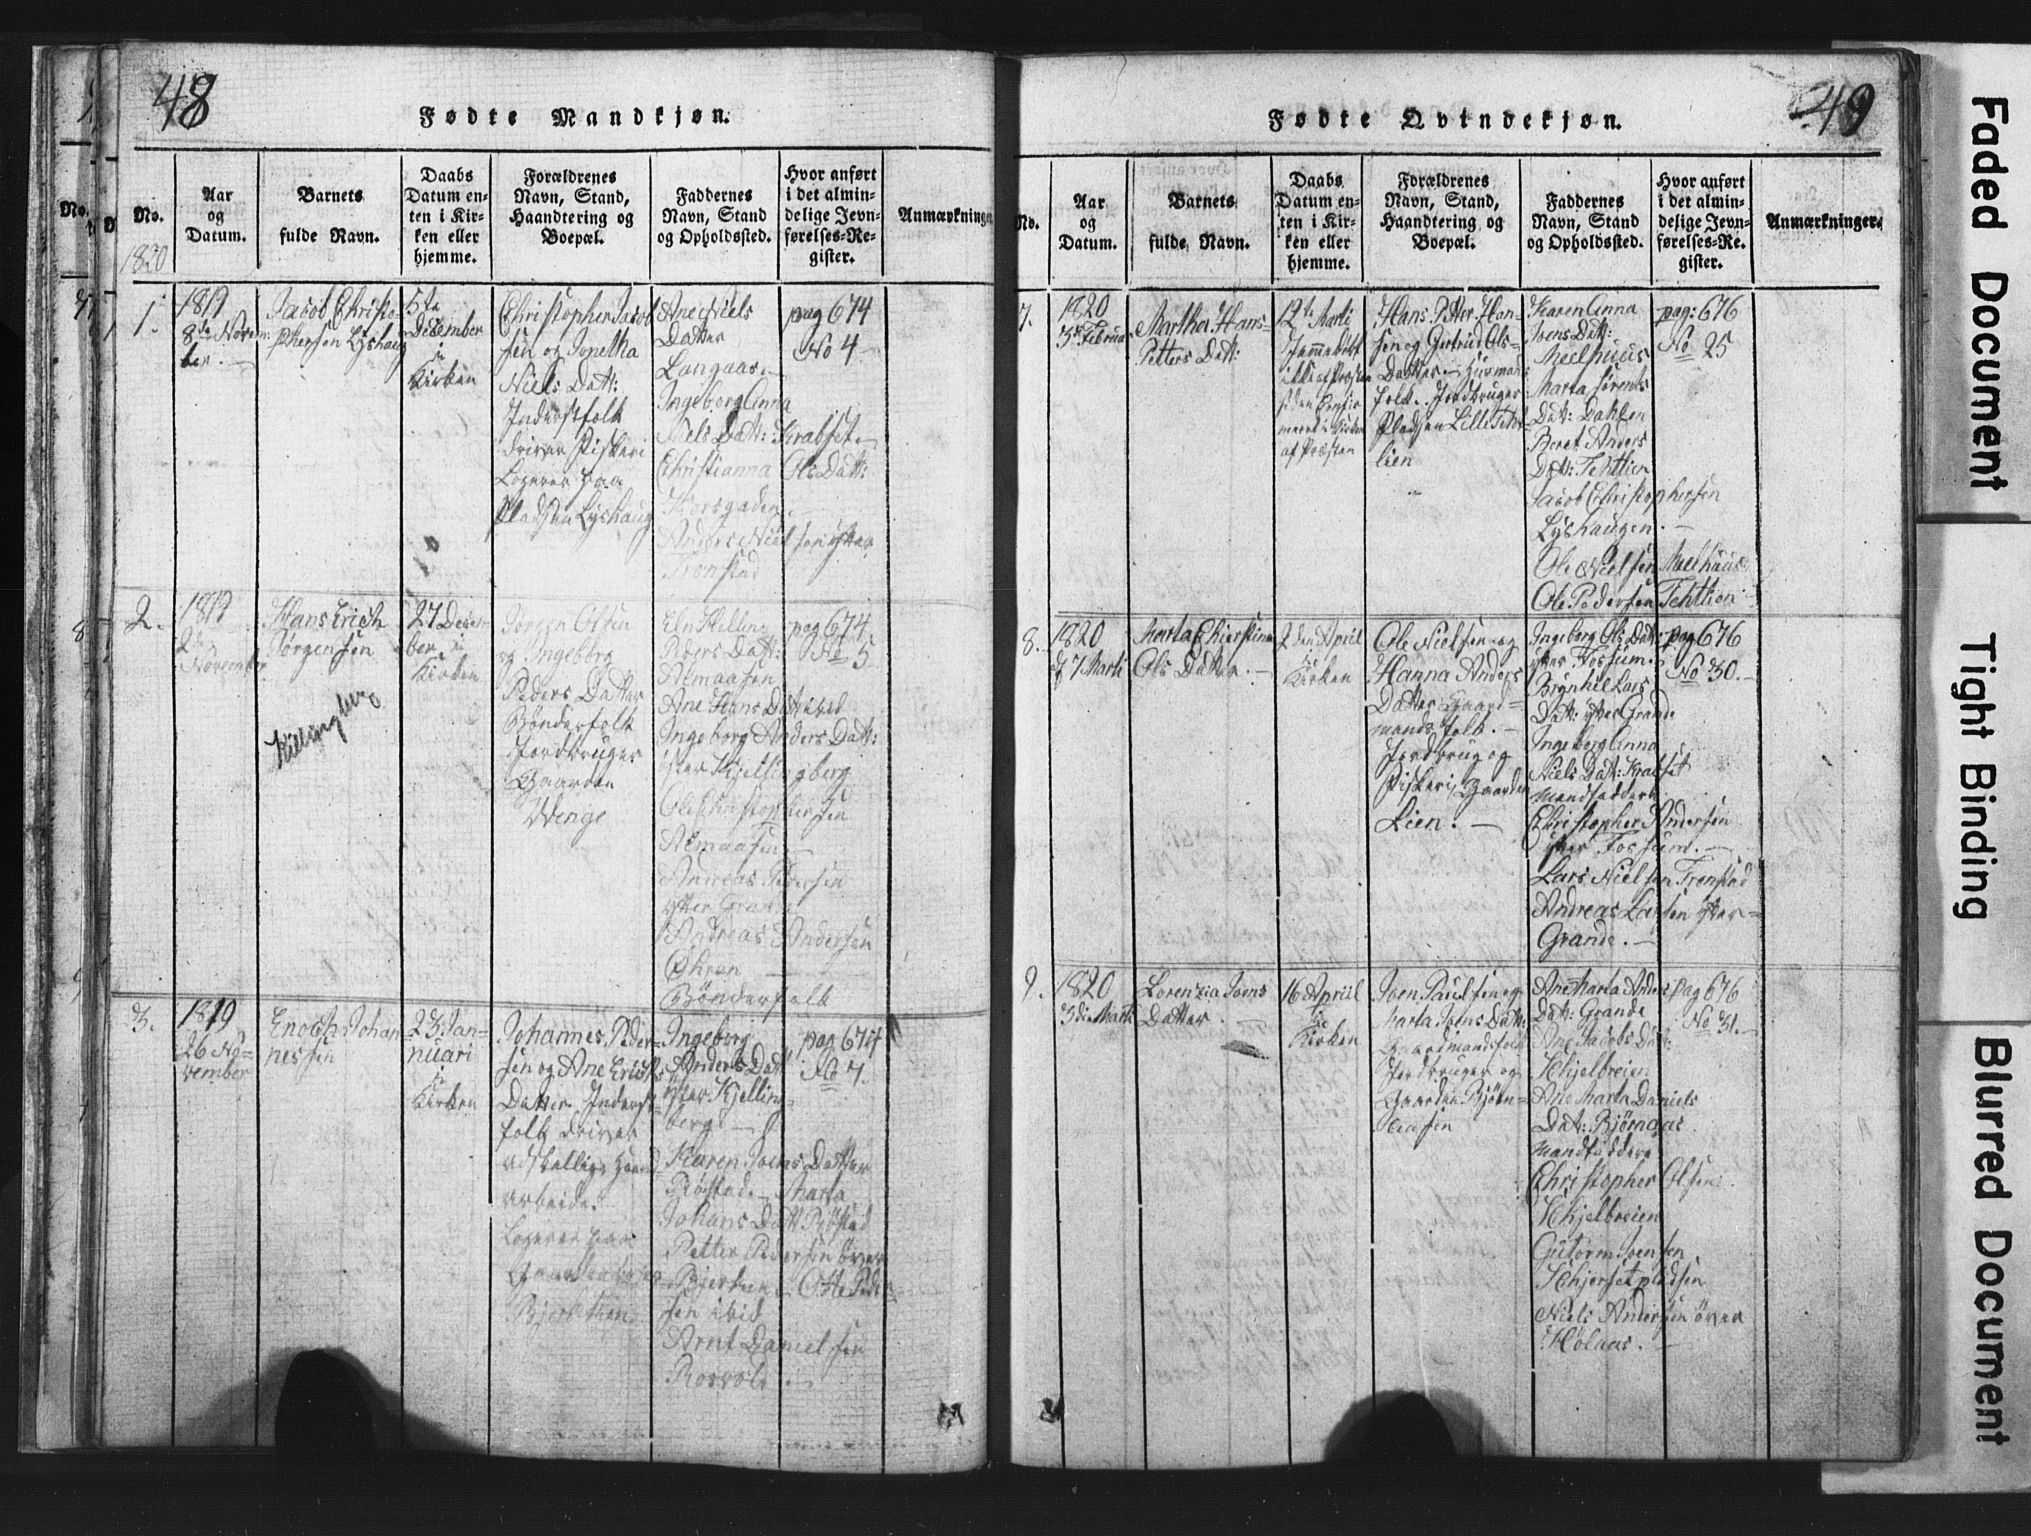 48
Fødte Mandkjøn.
No.
1820
Aar
og
Datum.
Barnets
fulde Navn.
Daabs
Datum en-
ten i Kir-
ken eller
hjemme.
Forældrenes
Navn, Stand,
Haandtering og
Boepæl.
Faddernes
Navn, Stand
og Opholdssted.
Hvor anført
i det almin-
delige Jevn-
førelses-Re-
gister.
Anmærkninger
1.
1819
8de Novem-
ber.
Jacob Christo-
phersen Lyshaug
5te
December
i
Kirken
Christopher Jacob
sen og Jonetha
Niels Datt:
Inderstfolk
driver Fiskeri
Logerer paa
Pladsen Lyshaug
Ane Niels
Datter
Langaas.
Ingeborg Anna
Niels Datt: Krabset
Christianna Ols Datt:
Korsgaden.
Anders Nielsen
Tronstad
pag 674
No 4
2.
1819
2den
November
Hans Erich
Jørgensen
Killingberg
27 Decem-
ber i
Kirken
Jørgen Olsen
og Ingeborg
Peders Datter
Bønderfolk
Jordbruger
Gaarden
Wenge
Peders Datt:
Almaasen
Ane Hans Datt ibid
Ingeborg Anders Datt:
øster Kjellingberg
Ole Christophersen
Almaasen
Andreas Pedersen
øster Grande
Andreas Andersen
Ohren
Bønderfolk
pag 674
No 5
3.
1819
26 No-
vember
Enoch Johan
nessen
23 Jan-
nuari
i
Kirken
Johannes Peder-
sen og Ane Erichs
Datter Inderst-
folk driver
adskellige Haand
arbeide.
Logerer paa
Gaarden
Ingeborg
Anders Datt
øster Kjelling-
berg
Karen Joens Datter
Røstad. Marta
Johans Datt Røstad
Petter Pedersen over
Ole Peder
sen ibid
Arnt Danielsen
Rosvold
pag 674
No 7.
49
Fødte Qvindekjøn.
No.
Aar
og
Datum.
Barnets
fulde Navn.
Daabs
Datum en-
ten i Kir-
ken eller
hjemme.
Forældrenes
Navn, Stand,
Haandtering og
Boepæl.
Faddernes
Navn, Stand
og Opholdssted.
Hvor anført
i det almin-
delige Jevn-
førelses-Re-
gister.
Anmærkninger.
7.
1820
3de Februar
Martha Hans-
Petters Datt:
12te Marti
Hjemmedøbt
Kirken
af Præsten
Hans Petter Han-
sen og Gertrud Ols-
Datter. Huusmands
folk. Jordbruger
Pladsen Lille Teht-
lien
Karen Anna
Joens Datt:
Meelhuus
Marta Sørents
Datt: Dahlen
Beret Anders
Datt: Tehtlien
Jacob Christophersen
Lyshaugen.
Ole Nielsen Meelhuus
Ole Pedersen Tehtlien
pag: 676
No 25
8.
1820
d 7 Marti
Ols Datter.
2den April
i
Kirken
Ole Nielsen og
Hanna Anders
Datter Gaard-
mands folk.
Jordbrug og
Fiskeri, Gaarden
Lien.
Ingeborg Ols Datt:
øster Fossum.
Brynhil Lars
Datt: øster Grande
Ingeborg Anna
Niels Datt: Krabset
Mandfaddere
Christopher Andersen
øster Fossum.
Lars Nielsen Tronstad
Andreas Larsen øster
Grande.
pag 676
No 30.
9.
1820
3die Marti
Lorenzia Joens
Datter
16 Apriil
i
Kirken
Joen Paulsen og
Marta Joens Datt:
Gaardmandsfolk
Jordbruger og
Gaarden Bjørn-
aasen
Ane Marta Anders
Datt: Grande
Ane Jacobs Datt:
Khjelbreien
Ane Marta Daniels
Datt: Bjørnaas
Mandfaddere
Christopher Olsen
Khjelbreien
Gutorm Joensen
Niels Andersen over
Holaas.
pag 676
No 31.
Faded Document
Tight Binding
Blurred Document